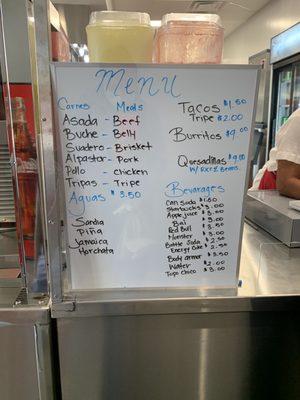 Menu
Carnes Meals
Asada - Beef
Buche - Belly
Suadero - Brisket
Alpastor - Pork
Pollo - chicken
Tripas - Tripe
Aguas $3.50
Sandia
Piña
Jamaica
Horchata
Tacos $1.50
Tripe $2.00
Burritos $9.00
Quesadillas $9.00
w/ Rice & Beans
Beverages
Can Soda $1.50
Starbucks $3.00
Apple Juice $3.00
Bai $3.00
Red Bull $3.50
Monster $3.00
Bottle Soda $2.50
Energy Coke $2.50
Body armor $3.50
Water $2.00
Topo Chico $3.00